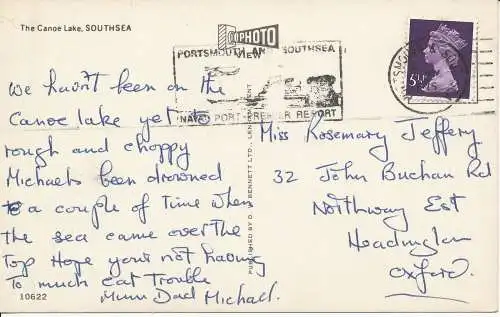 The Canoe Lake, SOUTHSEA
COPHOTO
PORTSMOUTH AND SOUTHSEA
VIEW
NAVAL PORT PREMIER RESORT
5½
We havn't been on the
Canoe lake yet to
rough and choppy
Michaels been drowned
a couple of time when
the sea came over the
top Hope your not having
to much cat trouble
Mum Dad Michael.
10622
PUBLISHED BY D. BENNETT LTD.,
Miss Rosemary Jeffery
32 John Buchan Rd
Northway Est
Headington
Oxford.